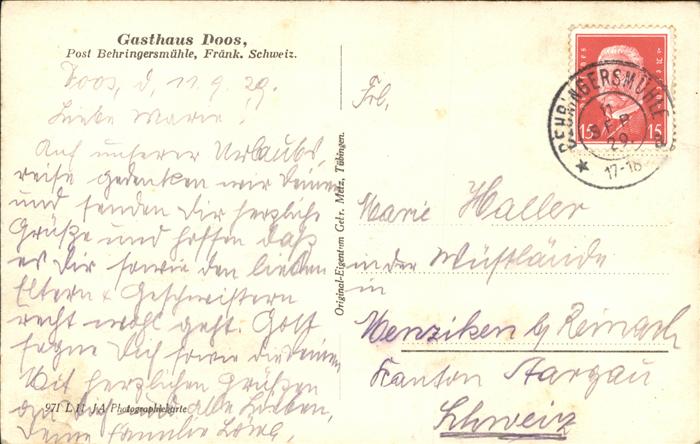 Gasthaus Doos,
Post Behringersmühle, Fränk. Schweiz.
Doos, d, 11.9.29.
Liebe Marie!
Auf unserer Urlaubs
reise gedenken wir Deiner
und senden Dir herzliche
Grüße und hoffen daß
es Dir sowie den lieben
Eltern & Geschwistern
recht wohl geht. Gott
segne Dich sowie die Deinen
Mit herzlichen Grüßen
an Dich und alle Lieben,
Deine Familie
971 L.H. JA Photographiekarte
Original-Eigentum Gebr. Metz, Tübingen.
BEHRINGERSMÜHLE
11
SEP
29.
17-18
15 15
Frl.
Marie Haller
in der Wüstlände
in
Menziken b/ Reinach
Kanton Aargau
Schweiz